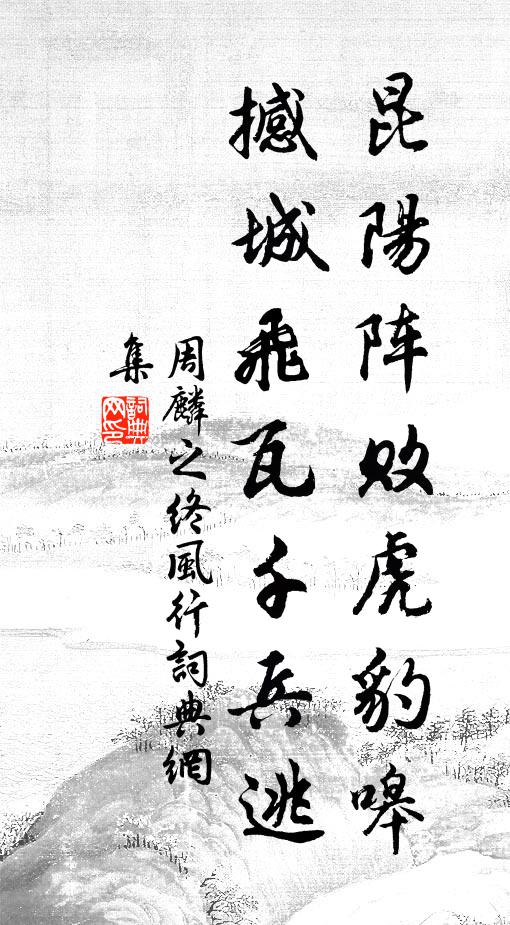 昆陽阵敗虎豹嗥
撼城飛瓦千兵逃
周麟之终風行詞典網
集
詞典网印